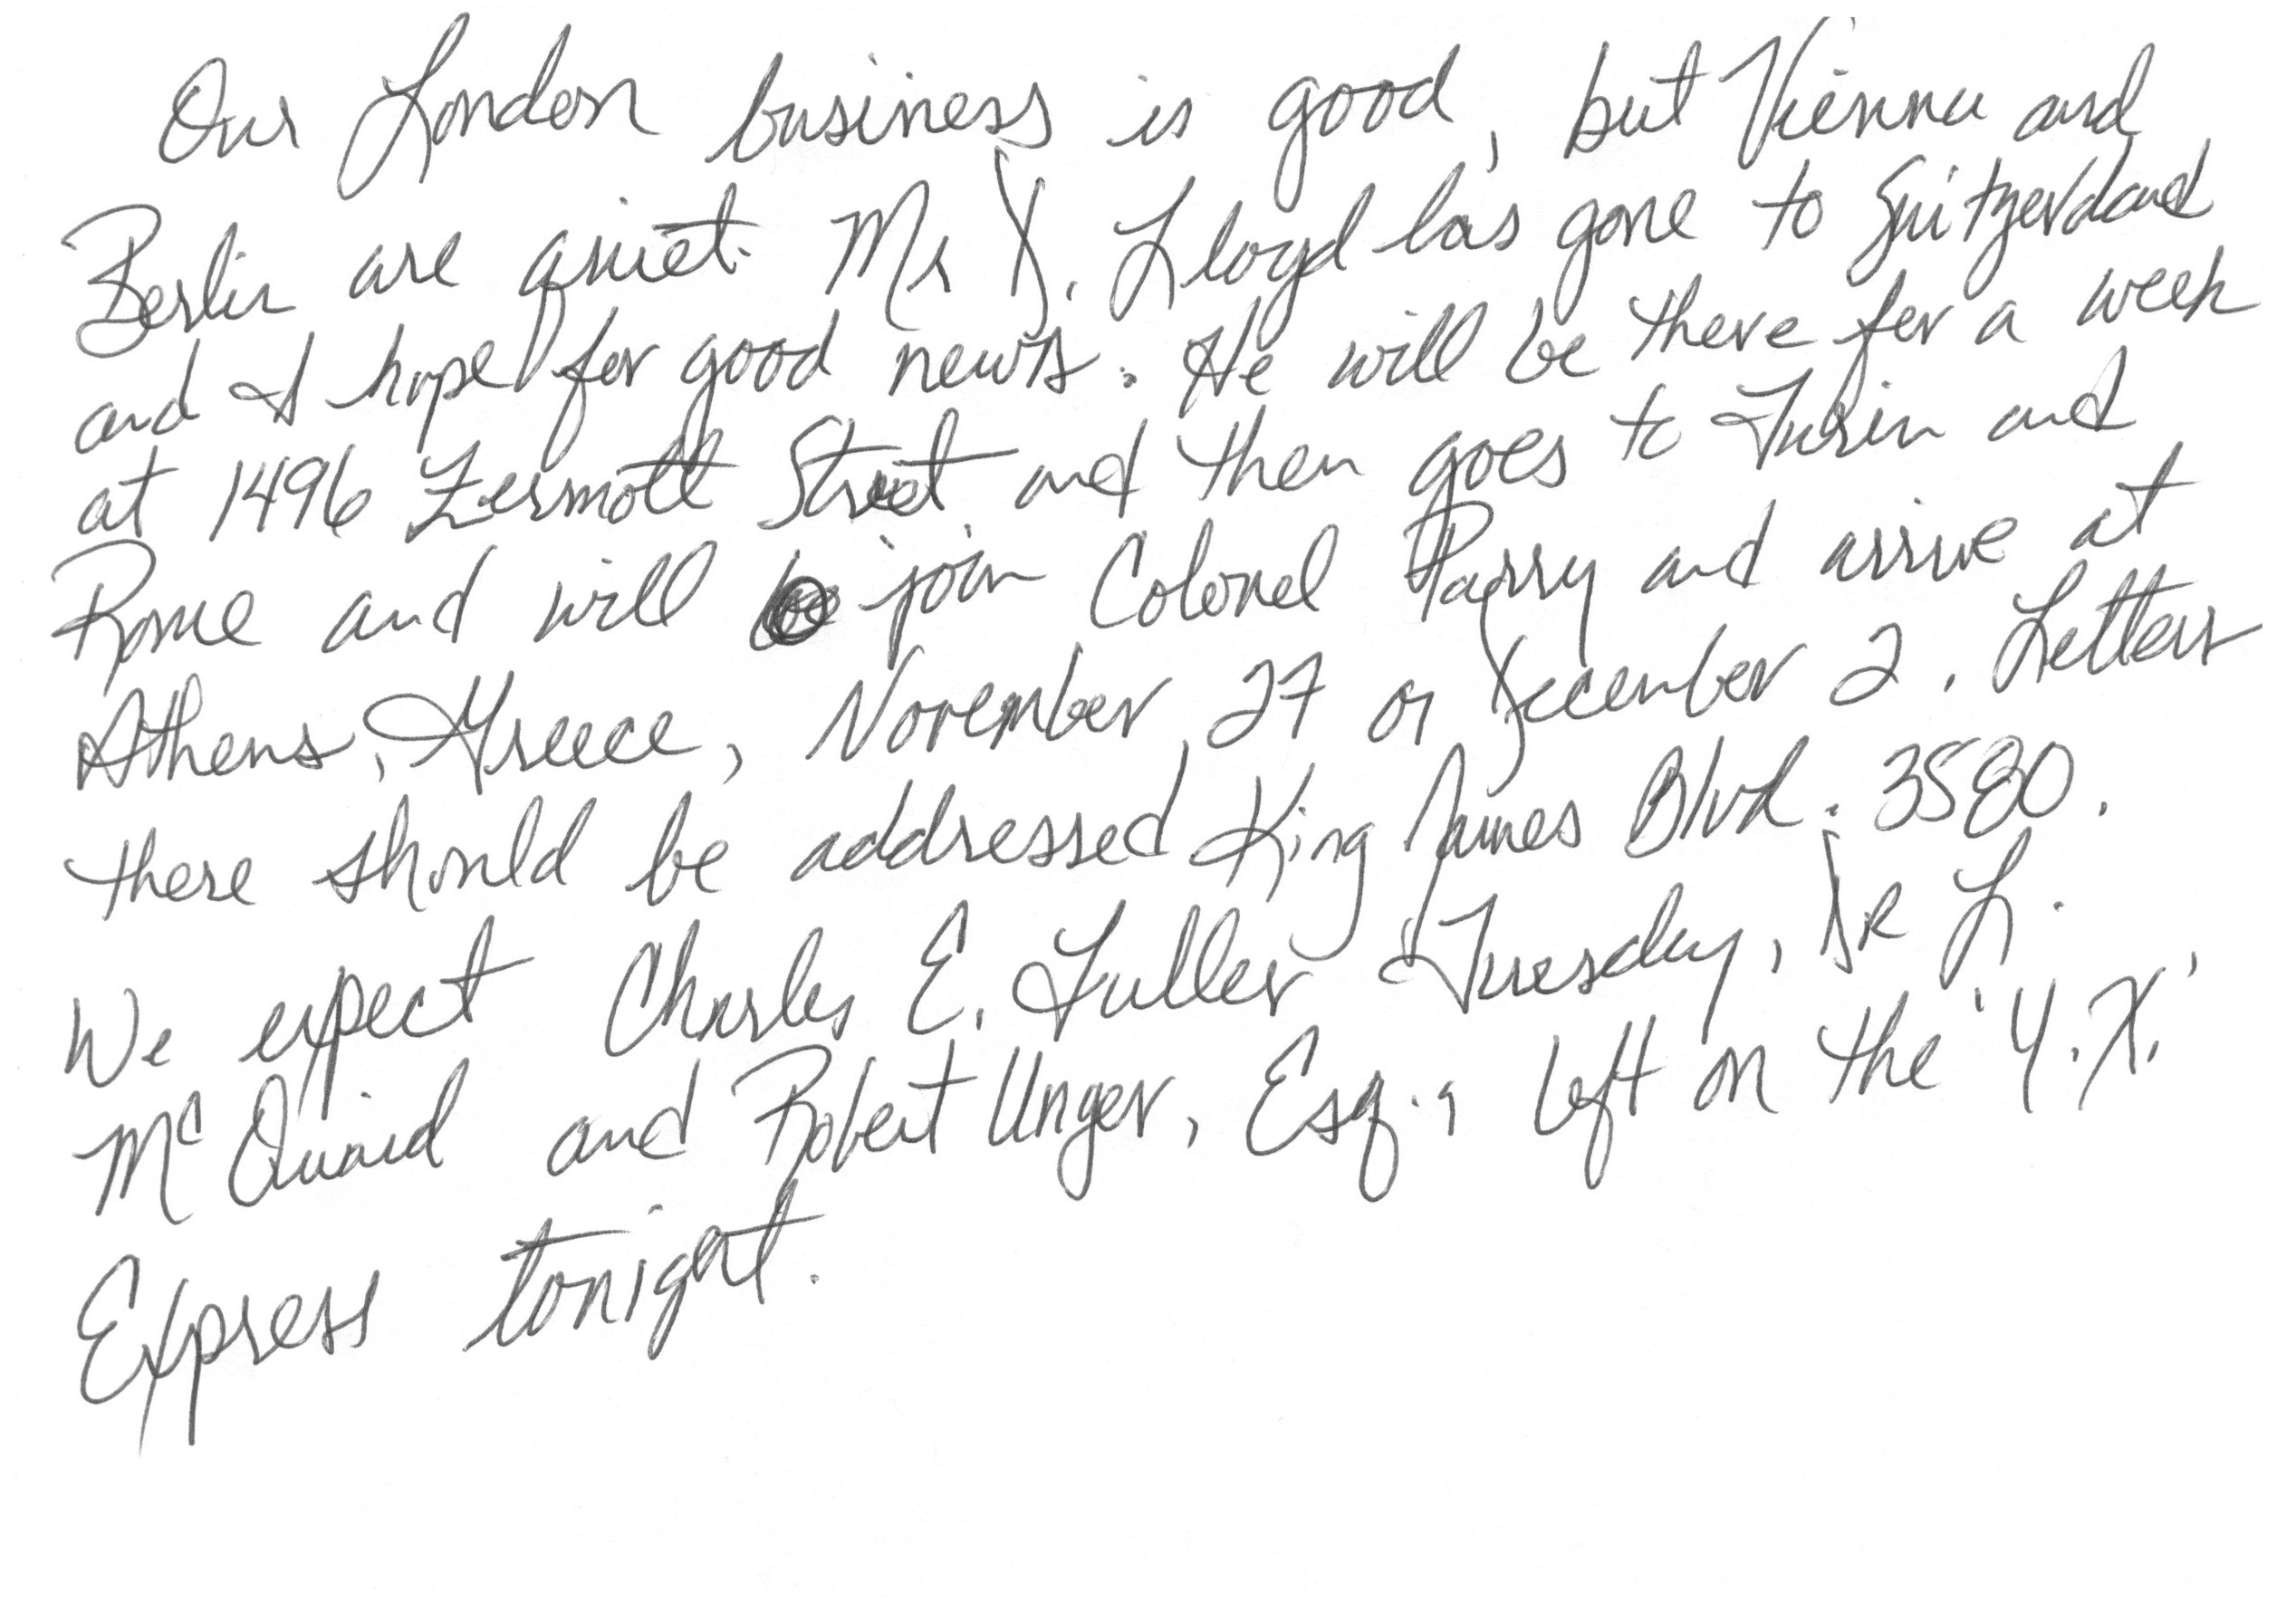 Our London business is good, but Vienna and
Berlin are quiet. Mr D. Lloyd has gone to Switzerland
and I hope for good news. He will be there for a week
at 1496 Zermott Street and then goes to Turin and
Rome and will join Colonel Parry and arrive at
Athens, Greece, November 27 or December 2. Letters
there should be addressed King James Blvd. 3580.
We expect Charles E. Fuller Tuesday, Dr L.
McQuaid and Robert Unger, Esq., left on the 'Y.X.'
Express tonight.